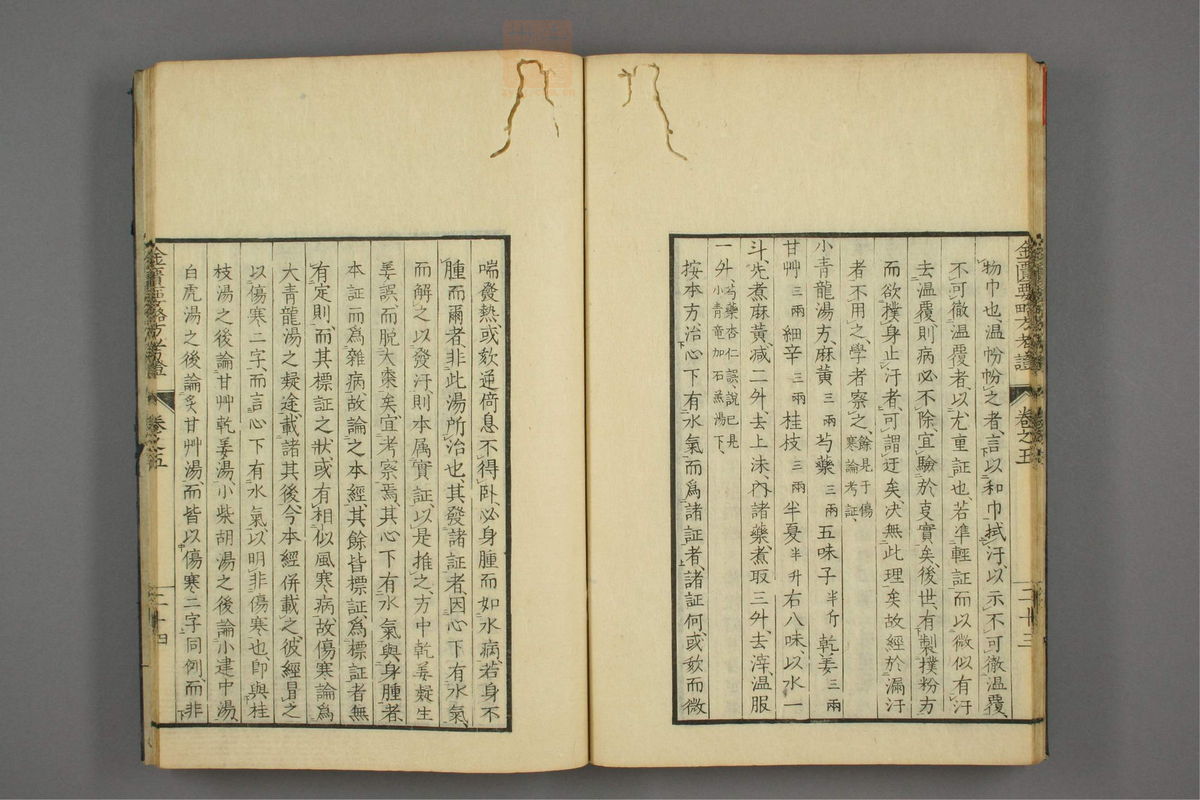 金匱要略方考證 卷之五 二十三
物巾也、温粉粉之者、言以和巾拭汗、以示不可徹温覆、
不可徹温覆者、以尤重証也、若準輕証而以微似有汗
去温覆則病必不除、宜驗於衷實矣、後世有製撲粉方
而欲撲身止汗者、可謂迂矣、决無此理矣、故經於漏汗
者不用之、學者察之、餘見于傷寒論考証、
小青龍湯方、麻黄三兩芍藥三兩五味子半斤乾姜三兩
甘艸三兩細辛三兩桂枝三兩半夏半升右八味、以水一
斗、先煮麻黄、减二升、去上沫、內諸藥、煮取三升、去滓、温服
一升、芍藥杏仁誤、說已見小青竜加石羔湯下、
按本方治心下有水氣而爲諸証者、諸証何、或欬而微
喘發熱或欬逆倚息不得卧必身腫而如水病若身不
腫而爾者、非此湯所治也、其發諸証者、因心下有水氣、
而解之以發汗則本属實証以是推之、方中乾姜疑生
姜誤、而脫大棗矣、宜考察焉、其心下有水氣與身腫者、
本証而爲雜病、故論之本經、其餘皆標証、爲標証者無
有定則、而其標証之狀或有相似風寒病、故傷寒論爲
大青龍湯之疑途、載諸其後、今本經併載之、彼經冒之
以傷寒二字、而言心下有水氣、以明非傷寒也、卽與桂
枝湯之後論甘艸乾姜湯、小柴胡湯之後論小建中湯、
白虎湯之後論炙甘艸湯、而皆以傷寒二字同例、而非
金匱要略方考證 卷之五 二十四